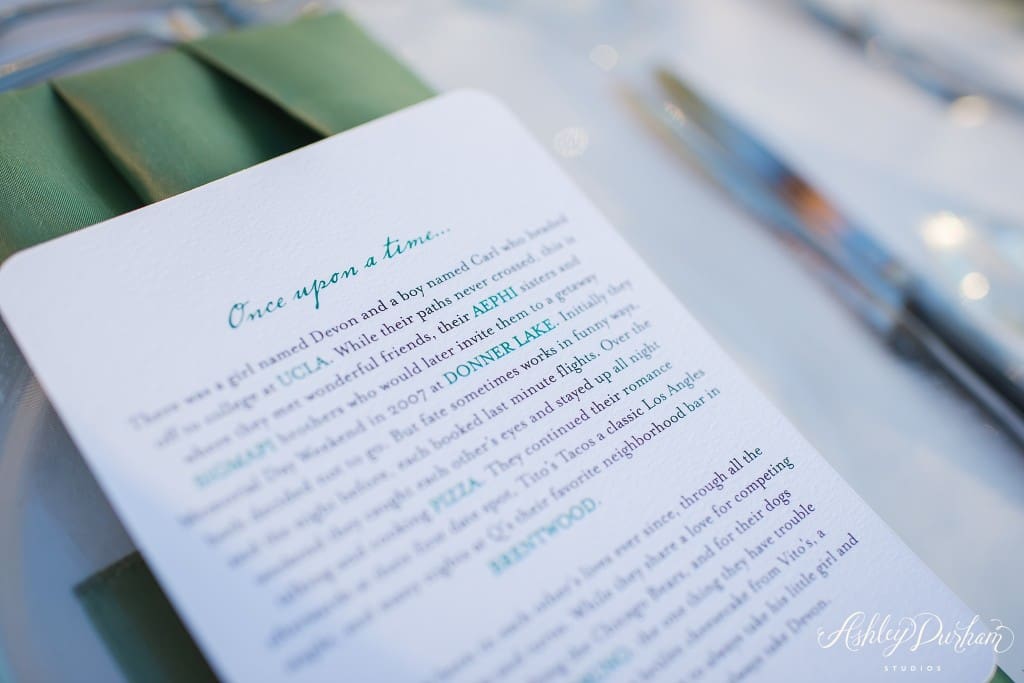 Once upon a time...
There was a girl named Devon and a boy named Carl who headed
off to college at UCLA. While their paths never crossed, this is
where they met wonderful friends, their AEPHI sisters and
SIGMAPI brothers who would later invite them to a getaway
Memorial Day Weekend in 2007 at DONNER LAKE. Initially they
both decided not to go. But fate sometimes works in funny ways,
and the night before, each booked last minute flights. Over the
weekend they caught each other's eyes and stayed up all night
talking and cooking PIZZA. They continued their romance
afterwards at their first date spot, Tito's Tacos a classic Los Angeles
and many nights at Q's their favorite neighborhood bar in
BRENTWOOD.
each other's lives ever since, through all the
While they share a love for competing
the Chicago Bears, and for their dogs
the one thing they have trouble
cheesecake from Vito's, a
take his little girl and
take Devon.
Ashley Durham
STUDIOS